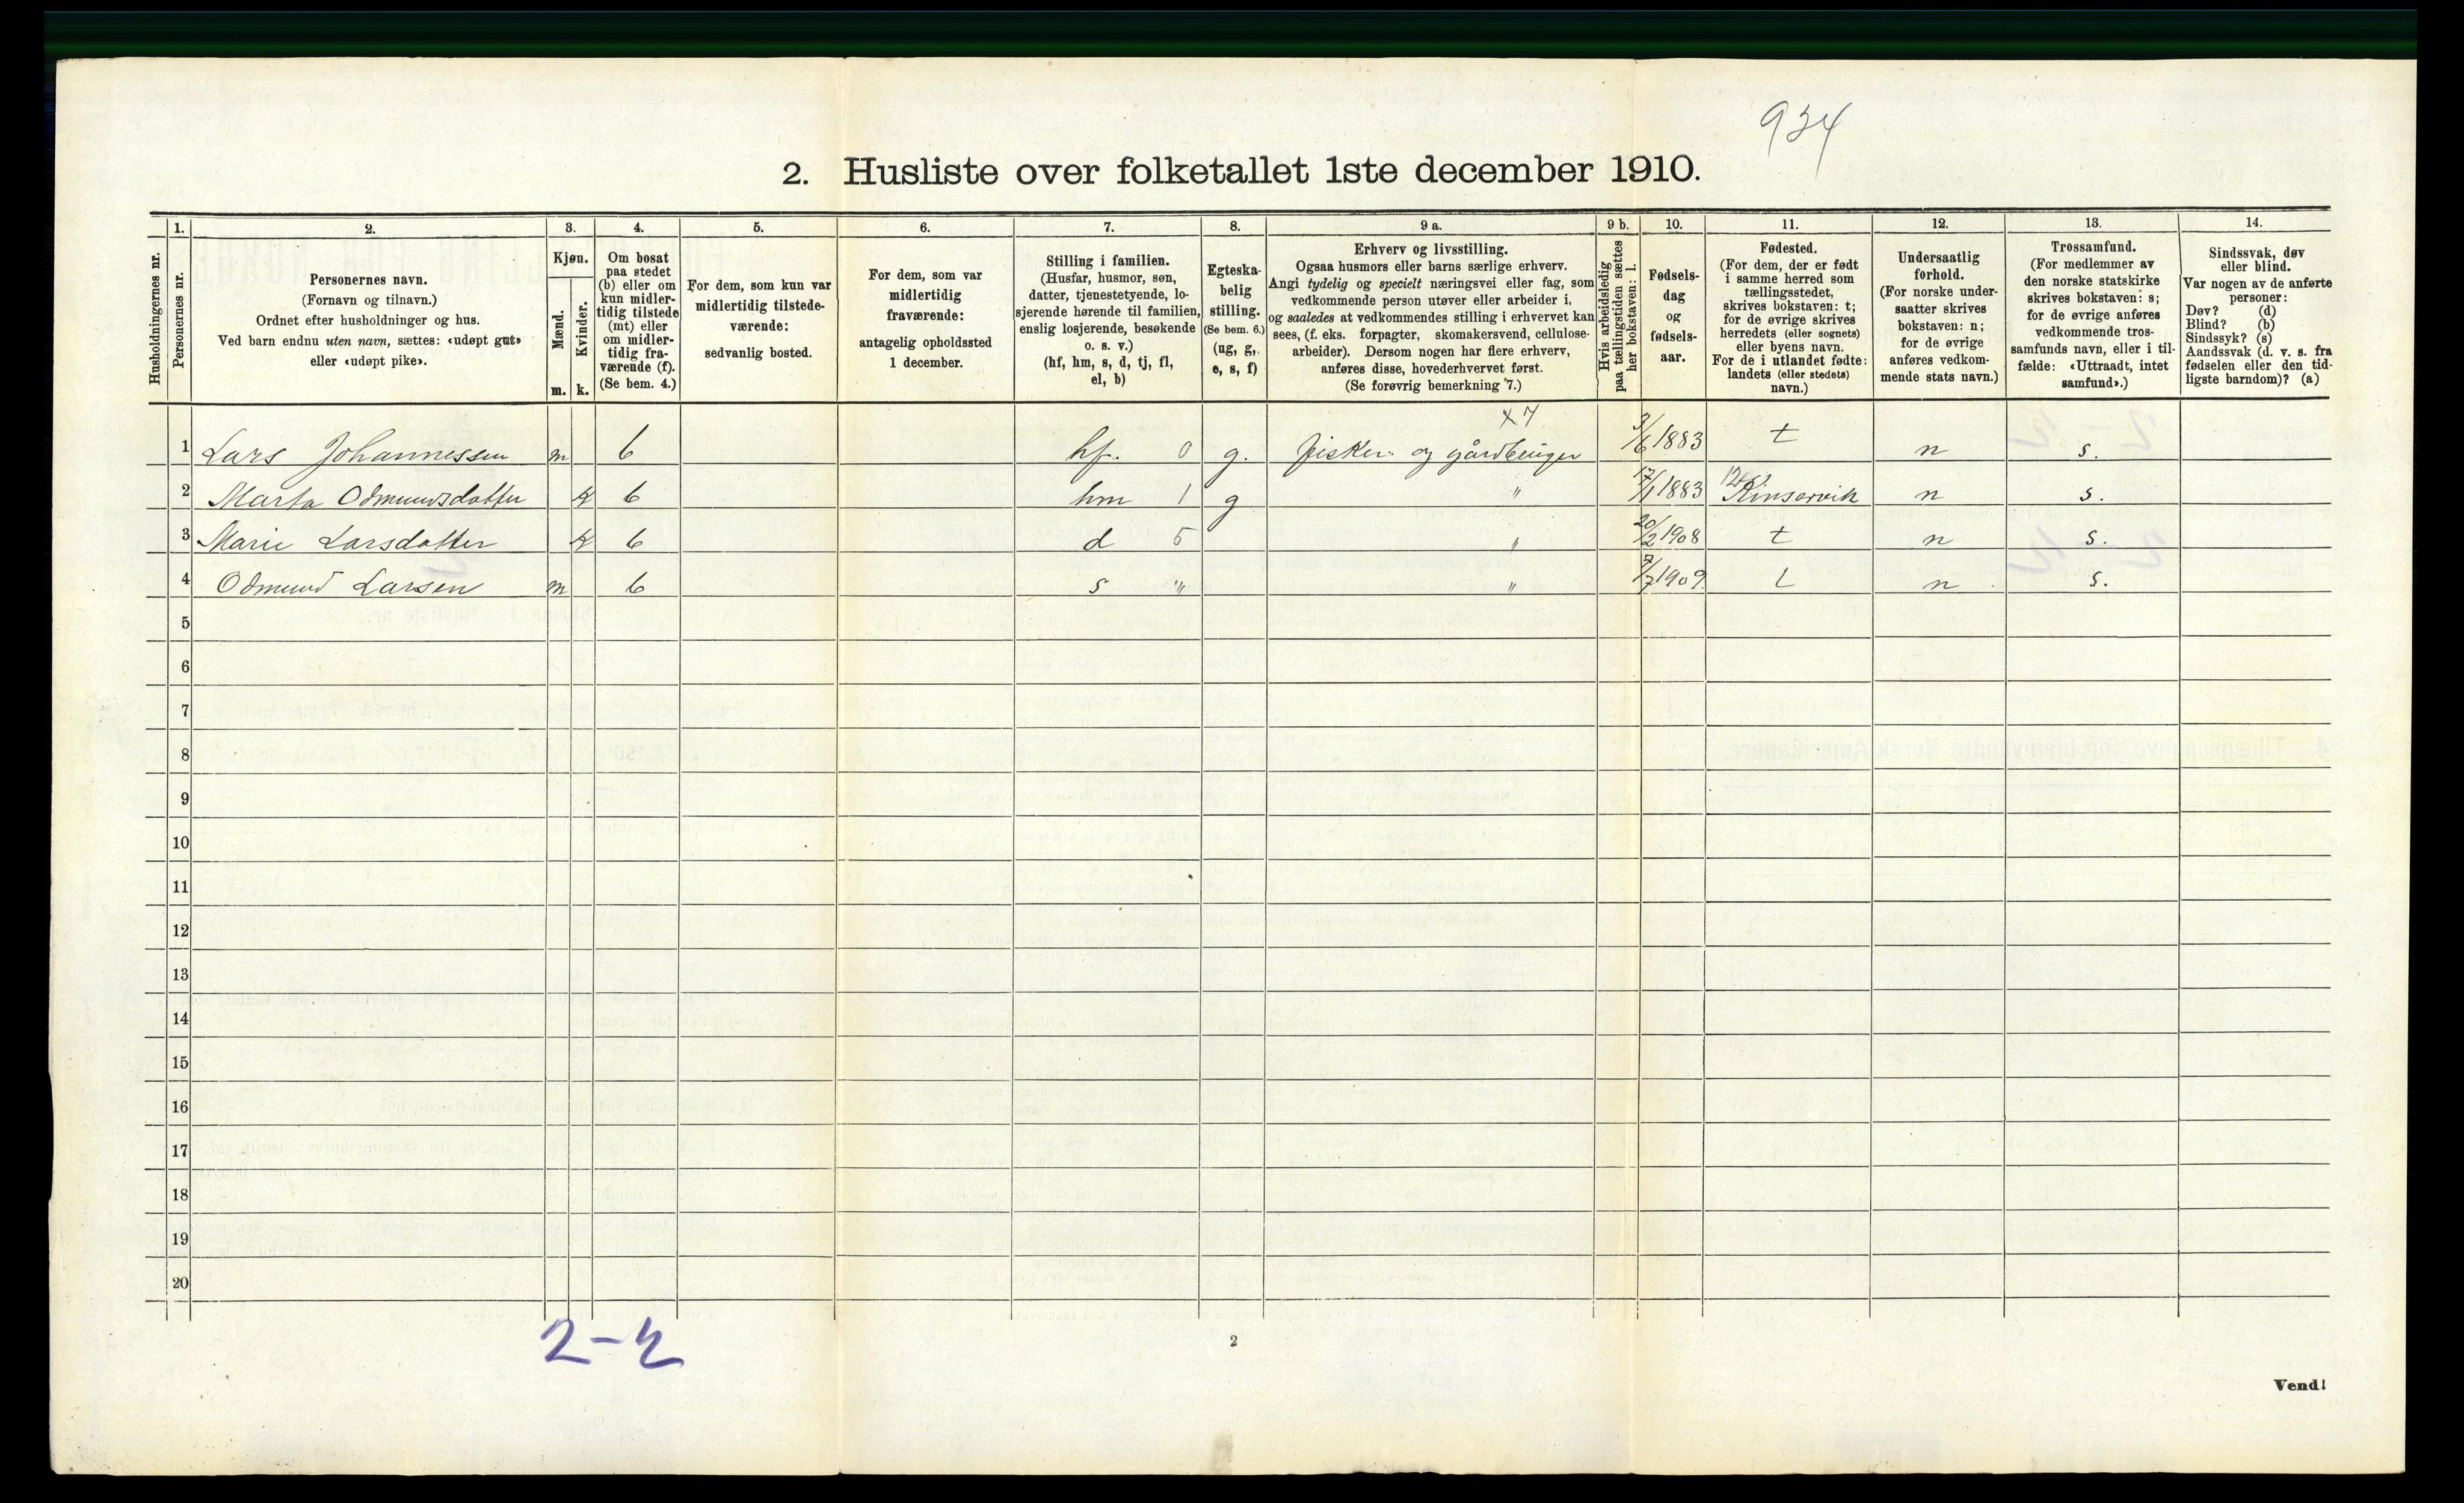 934
2. Husliste over folketallet 1ste december 1910.
Husholdningernes nr.
1.
Personernes nr.
2.
Personernes navn.
(Fornavn og tilnavn.)
Ordnet efter husholdninger og hus.
Ved barn endnu uten navn, sættes: «udøpt gut»
eller «udøpt pike».
3.
Kjøn.
Mænd.
m.
Kvinder.
k.
4.
Om bosat
paa stedet
(b) eller om
kun midler-
tidig tilstede
(mt) eller
om midler-
tidig fra-
værende (f).
(Se bem. 4.)
5.
For dem, som kun var
midlertidig tilstede-
værende:
sedvanlig bosted.
6.
For dem, som var
midlertidig
fraværende:
antagelig opholdssted
1 december.
7.
Stilling i familien.
(Husfar, husmor, søn,
datter, tjenestetyende, lo-
sjerende hørende til familien,
enslig losjerende, besøkende
o. s. v.)
(hf, hm, s, d, tj, fl,
el, b)
8.
Egteska-
belig
stilling.
(Se bem. 6.)
(ug, g,
e, s, f)
9 a.
Erhverv og livsstilling.
Ogsaa husmors eller barns særlige erhverv.
Angi tydelig og specielt næringsvei eller fag, som
vedkommende person utøver eller arbeider i,
og saaledes at vedkommendes stilling i erhvervet kan
sees, (f. eks. forpagter, skomakersvend, cellulose-
arbeider). Dersom nogen har flere erhverv,
anføres disse, hovederhvervet først.
(Se forøvrig bemerkning 7.)
9 b.
Hvis arbeidsledig
paa tællingstiden sættes
her bokstaven: l.
10.
Fødsels-
dag
og
fødsels-
aar.
11.
Fødested.
(For dem, der er født
i samme herred som
tællingsstedet,
skrives bokstaven: t;
for de øvrige skrives
herredets (eller sognets)
eller byens navn.
For de i utlandet fødte:
landets (eller stedets)
navn.)
12.
Undersaatlig
forhold.
(For norske under-
saatter skrives
bokstaven: n;
for de øvrige
anføres vedkom-
mende stats navn.)
13.
Trossamfund.
(For medlemmer av
den norske statskirke
skrives bokstaven: s;
for de øvrige anføres
vedkommende tros-
samfunds navn, eller i til-
fælde: «Uttraadt, intet
samfund».)
14.
Sindssvak, døv
eller blind.
Var nogen av de anførte
personer:
Døv? (d)
Blind? (b)
Sindssyk? (s)
Aandssvak (d. v. s. fra
fødselen eller den tid-
ligste barndom)? (a)
x 7
1 Lars Johannessen m b hf. 0 g. fisker og gårdbruger 3/6 1883 t n s.
2 Marta Odmundsdatter k b hm 1 g " 17/1 1883 Kinservik n s.
3 Marie Larsdatter k b d 5 " 20/2 1908 t n s.
4 Odmund Larsen m b s " " 7/7 1909 t n s.
5
6
7
8
9
10
11
12
13
14
15
16
17
18
19
20
2-2
2
Vend!